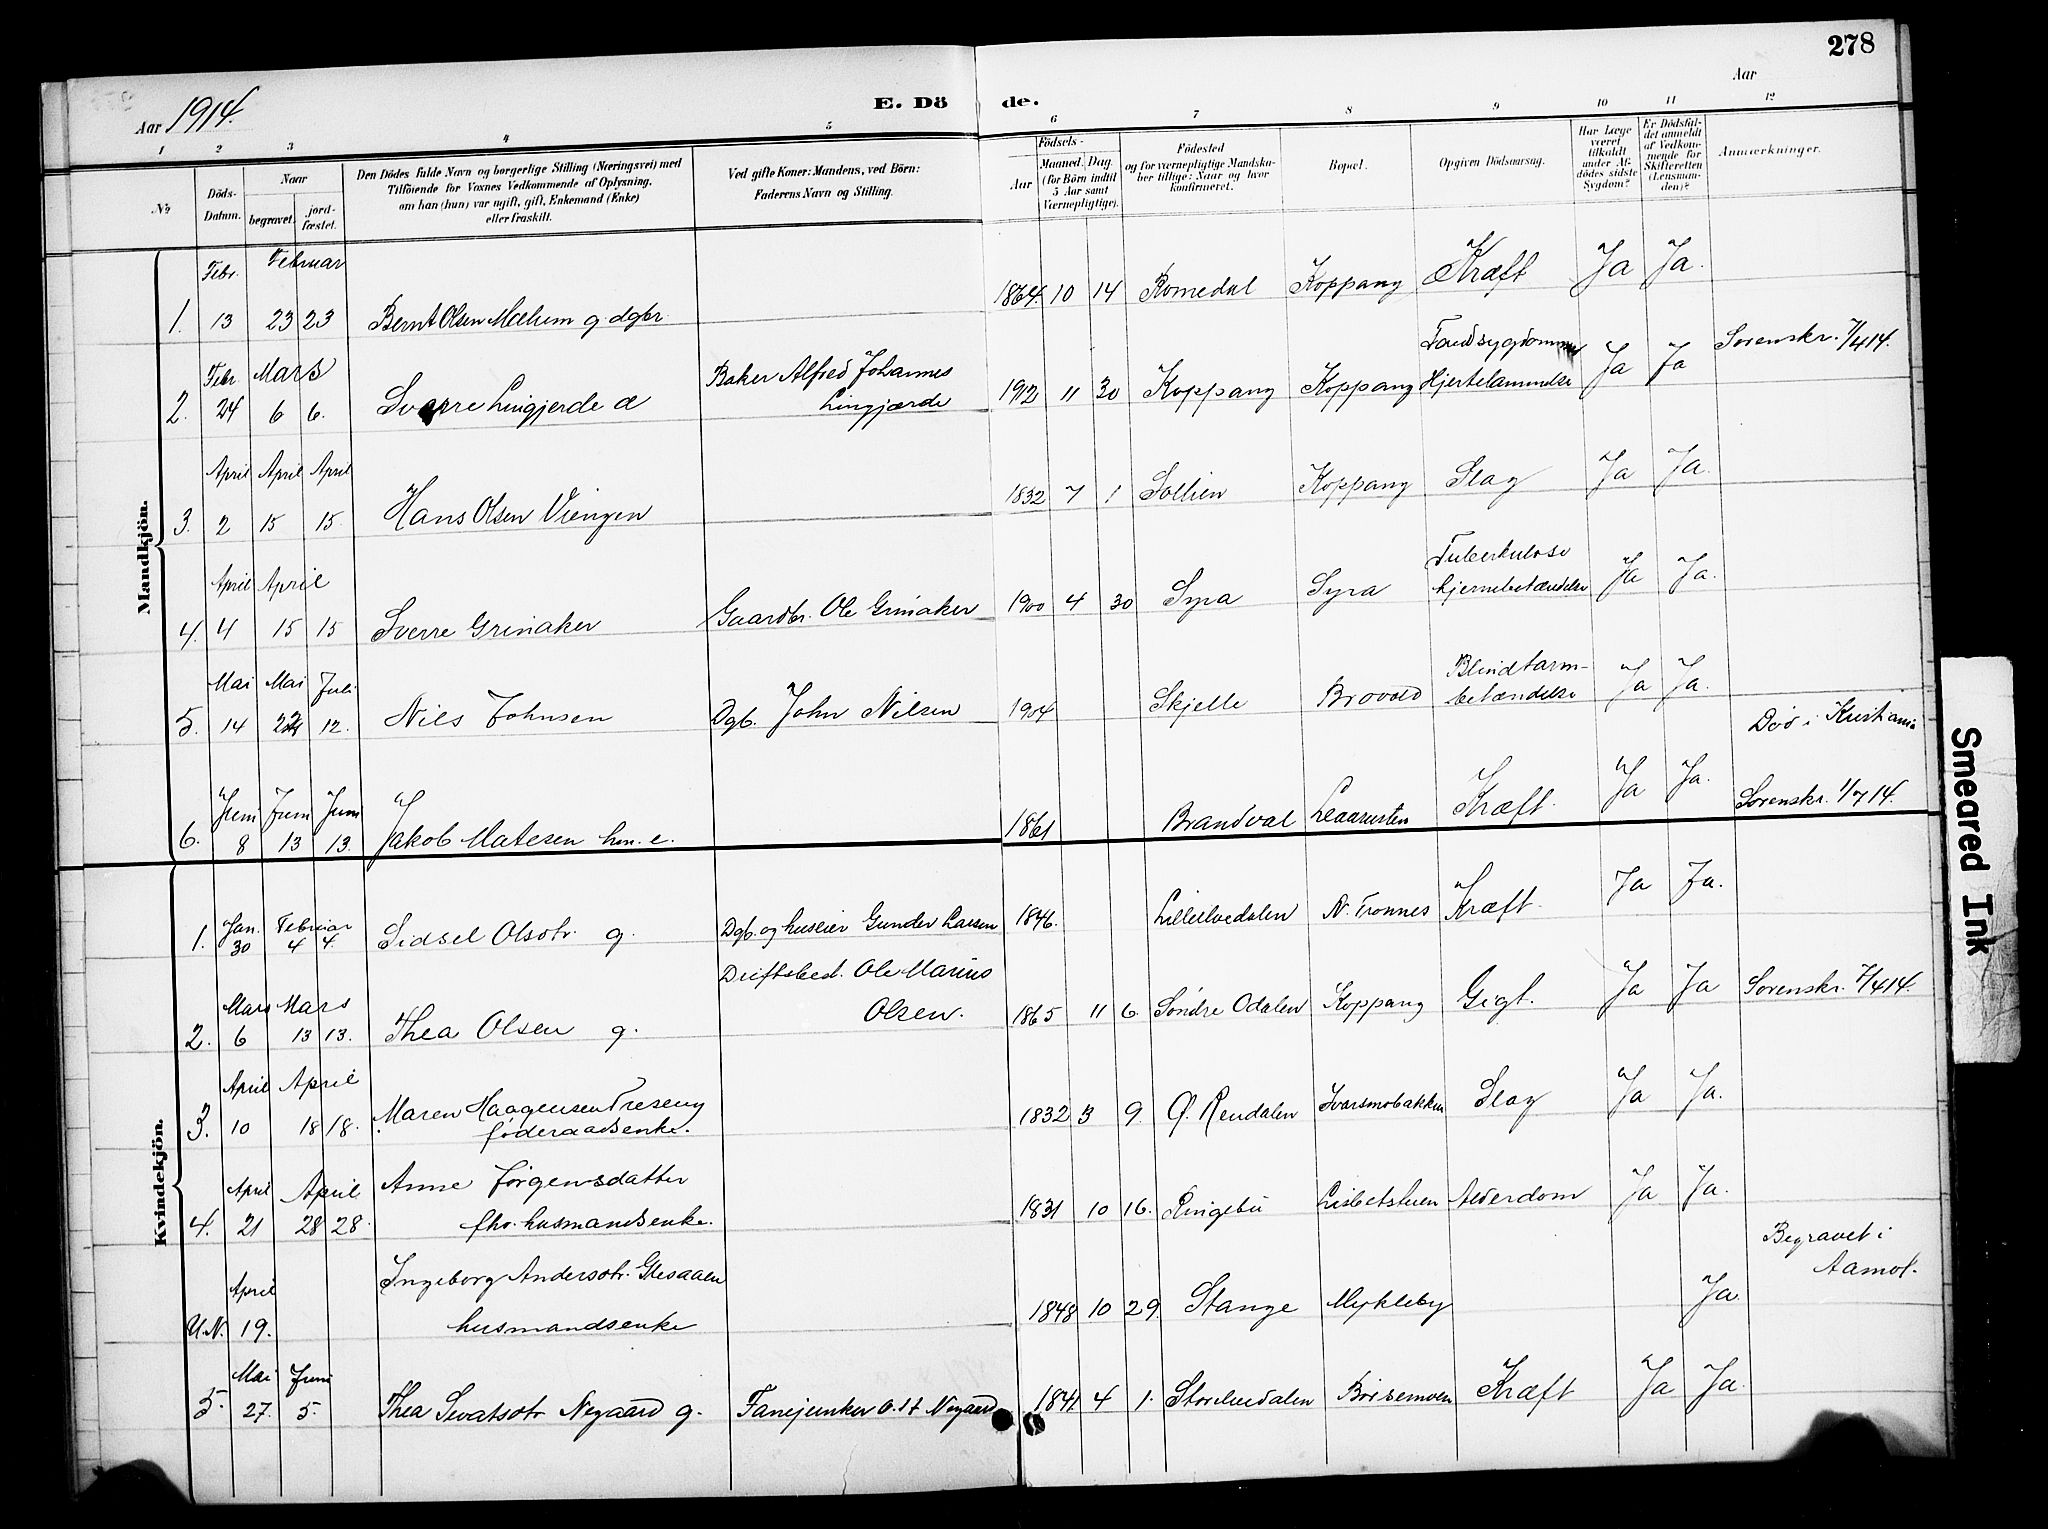 278
Aar 1914.
E. Dö de.
Aar
1 2 3 4 5 6 7 8 9 10 11 12
No
Döds-Datum.
Naar
begravet.
jord-fæstet.
Den Dödes fulde Navn og borgerlige Stilling (Næringsvei) med
Tilföiende for Voxnes Vedkommende af Oplysning,
om han (hun) var ugift, gift, Enkemand (Enke)
eller fraskilt.
Ved gifte Koner: Mandens, ved Börn:
Faderens Navn og Stilling.
Födsels-
Aar
Maaned. Dag.
(for Börn indtil
5 Aar samt
Værnepligtige).
Födested
og for værnepligtige Mandska-
ber tillige: Naar og hvor
konfirmeret.
Bopæl.
Opgiven Dödsaarsag.
Har Læge
været
tilkaldt
under Af-
dödes sidste
Sygdom?
Er Dödsfal-
det anmeldt
af Vedkom-
mende for
Skifteretten
(Lensman-
den)?
Anmærkninger.
Mandkjön.
Febr. Februar
1. 13 23 23 Bernt Olsen Mælum g. dgbr. 1864. 10 14 Romedal Koppang Kræft Ja Ja.
Febr. Mars Baker Alfred Johannes
2. 24 6 6. Sverre Lingjerde Lingjærde 1912 11 30 Koppang Koppang Hjertelammelse Ja Ja Sorenskr. 7/4 14.
April April April
3. 2 15 15. Hans Olsen Viengen 1832 7 1 Sollien Koppang Slag Ja Ja.
April April Tuberkuløse
4. 4 15 15 Sverre Grinaker Gaardbr. Ole Grinaker 1900 4 30 Syra Syra hjernebetændelse Ja Ja.
Mai Mai Juli Blindtarm-
5. 14 22 12. Nils Johnsen Dgb. John Nilsen 1904 Skjelle Brovold betændelse Ja Ja. Død i Kristiania
Juni Juni Juni
6. 8 13 13. Jakob Matesen hm. e. 1861 Brandval Kræft. Ja Ja. Sorenskr. 1/7 14.
Kvindekjön.
Jan. Februar
1. 30 4 4. Sidsel Olsdtr. g. Dgb. og huseier Gunder Larsen 1846. Lilleelvedalen N. Trønnes Kræft. Ja Ja.
Mars Mars Driftsbest. Ole Marius
2. 6 13 13. Thea Olsen g. Olsen. 1865 11 6. Søndre Odalen Koppang Gigt. Ja Ja Sorenskr. 7/4 14.
April April
3. 10 18 18. Maren Haagensen Treseng
føderaadsenke. 1832 3 9. Ø. Rendalen Ivarsmobakken Slag Ja Ja.
April April Anne Jørgensdatter
4. 21 28 28. fhv. husmandsenke. 1831 10 16. Ringebu Lisbetstuen Alderdom Ja Ja.
April Ingeborg Andersdtr.
U.N. 19. husmandsenke 1848 10 29. Stange Mykleby Ja. Begravet i
Aamot.
Mai Juni
5. 27. 5. Thea Sivatsdtr Negaard g. Fanejunker O. H. Negaard 1841. 4 1. Storelvedalen Kræft Ja Ja.
Smeared Ink